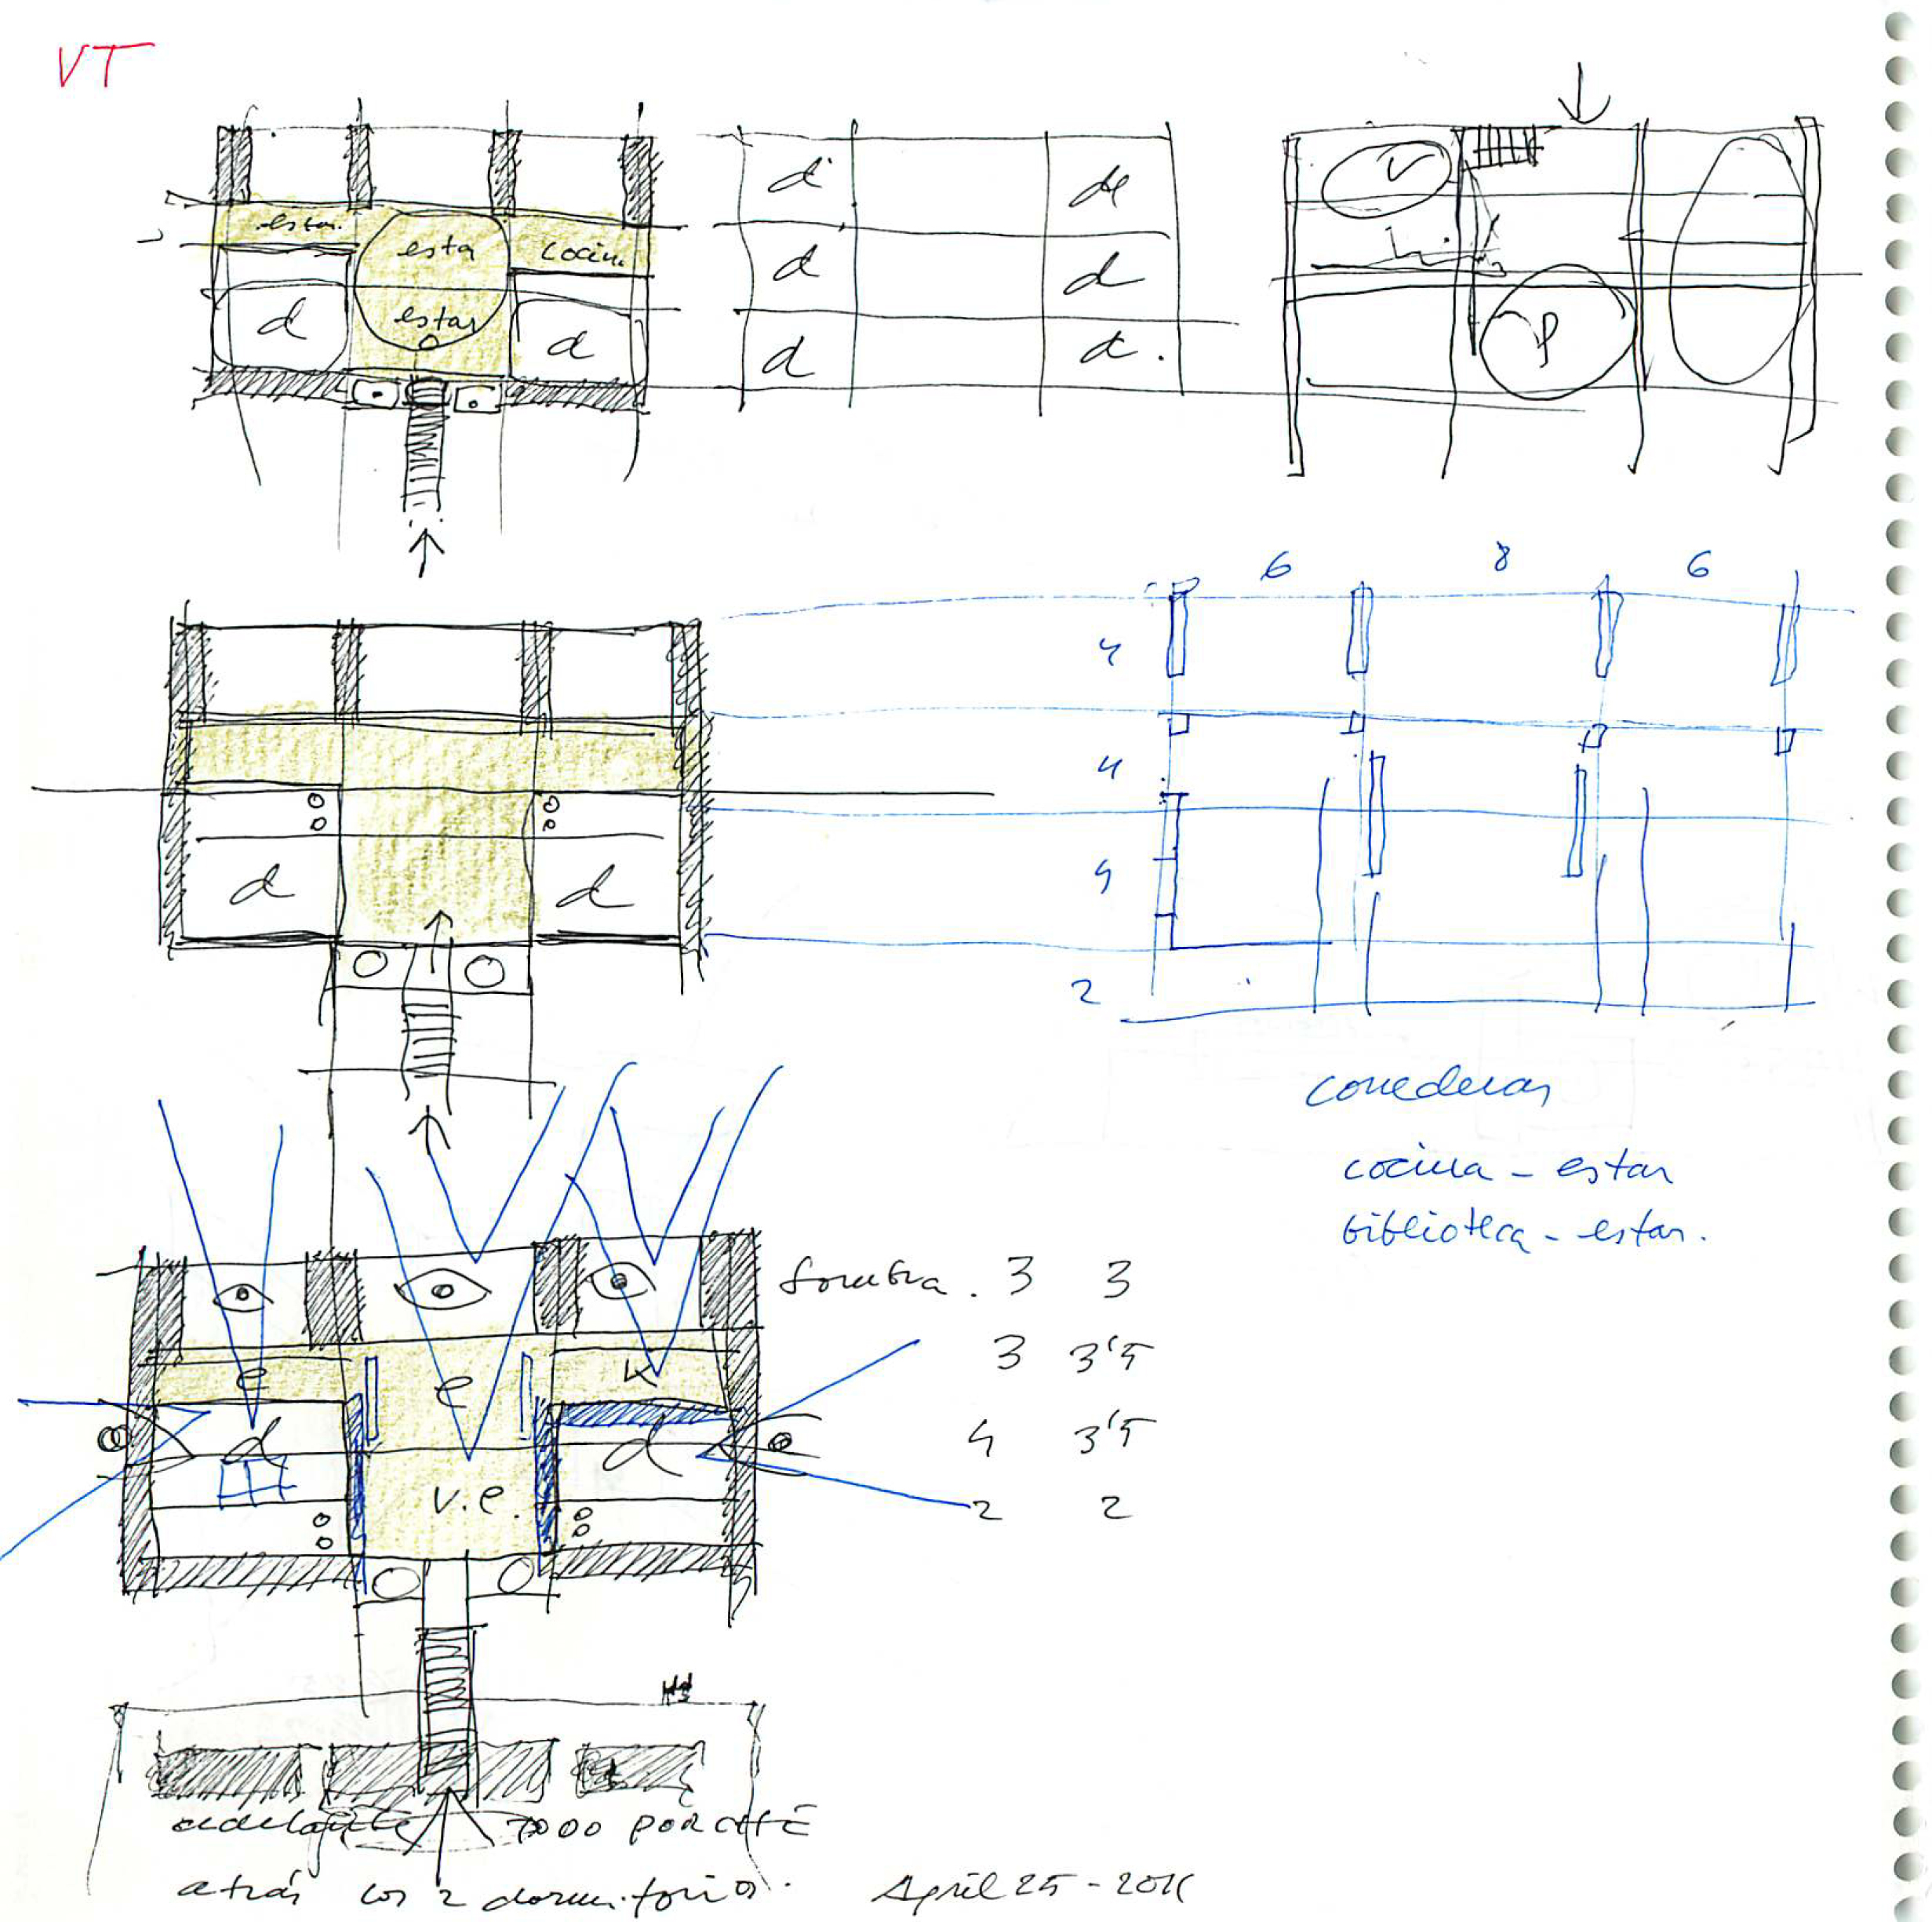 VT
estar
esta
cocin.
estar
d
d
d
d
d
d
d
d
V
P
6 8 6
4
4
4
2
d
d
correderas
cocina - estar
biblioteca - estar.
sombra. 3 3
3 3'5
4 3'5
2 2
e
e
K
d
d
v.e.
adelante TODO PORCHE
atrás los 2 dormitorios.
April 25 - 2011